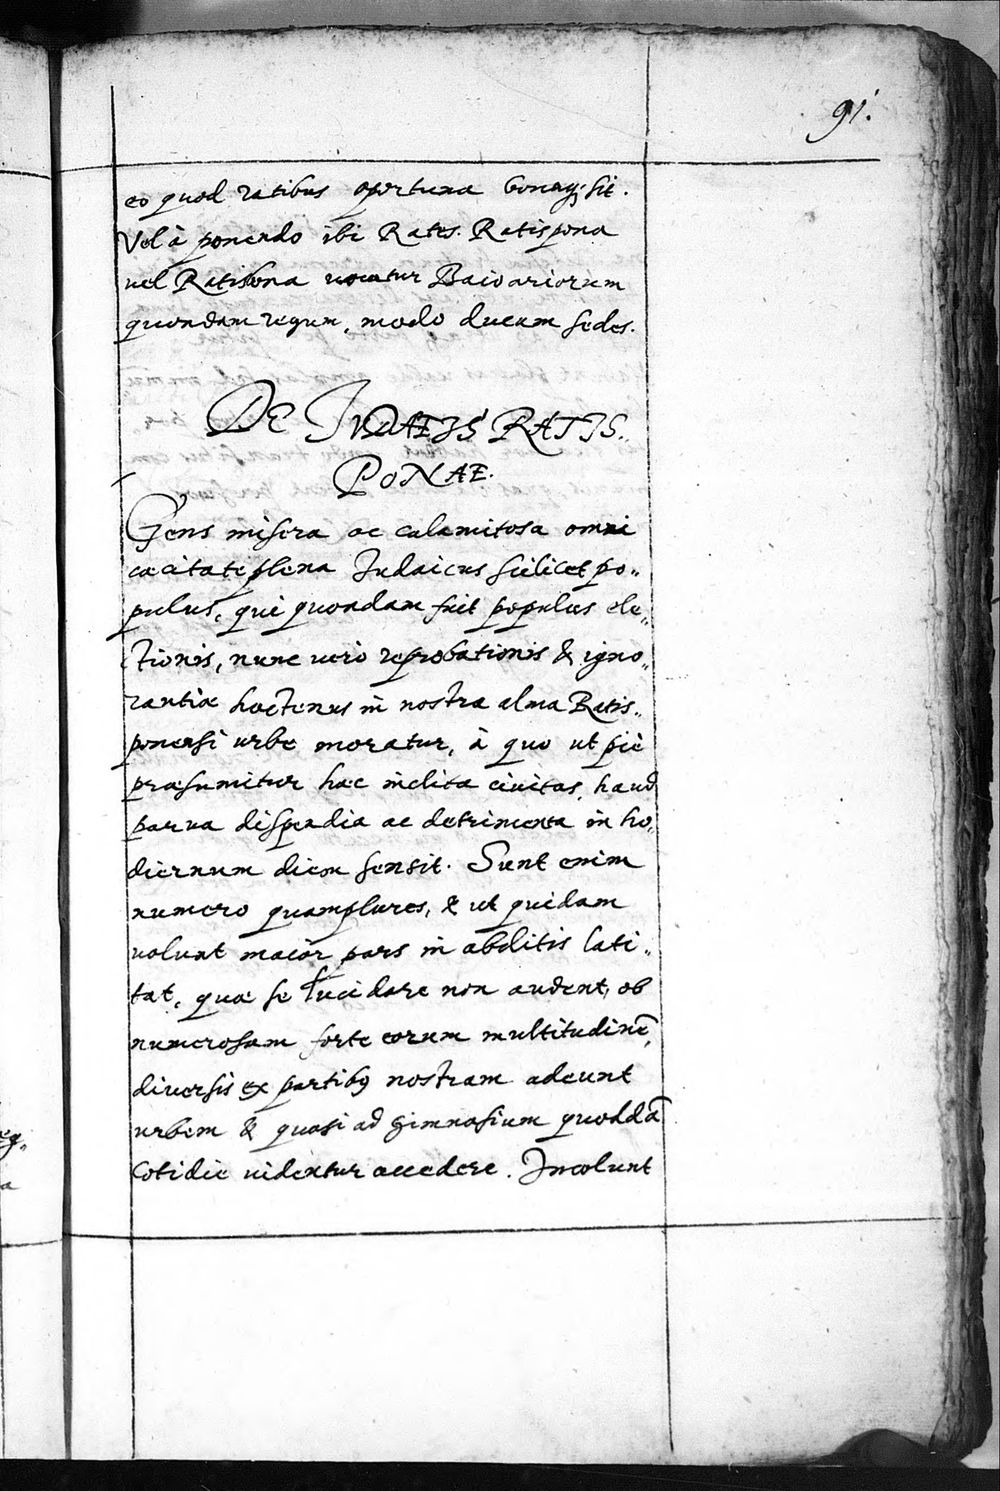 91.
eo quod ratibus oportuna bonaq; sit.
Vel à ponendo ibi Rates. Ratispona
uel Ratisbona uocatur Baioariorum
quondam regum, modo ducum sedes.
DE JVDAEIS RATIS.
PONAE.
Gens misera ac calamitosa omni
cæcitate plena Judaicus scilicet po„
pulus, qui quondam fuit populus ele„
ctionis, nunc uerò reprobationis & igno„
rantiæ hactenus in nostra alma Ratis„
ponensi urbe moratur, à quo ut piè
præsumitur hæc inclita ciuitas, haud
parua dispendia ac detrimenta in ho„
diernum diem sensit. Sunt enim
numero quamplures, & ut quidam
uolunt maior pars in abditis lati„
tat, quæ se lucidare non audent, ob
numerosam forte eorum multitudinē,
diuersis ex partibꝰ nostram adeunt
urbem & quasi ad gimnasium quoddā
cotidie uidentur accedere. Incolunt
eg„
a